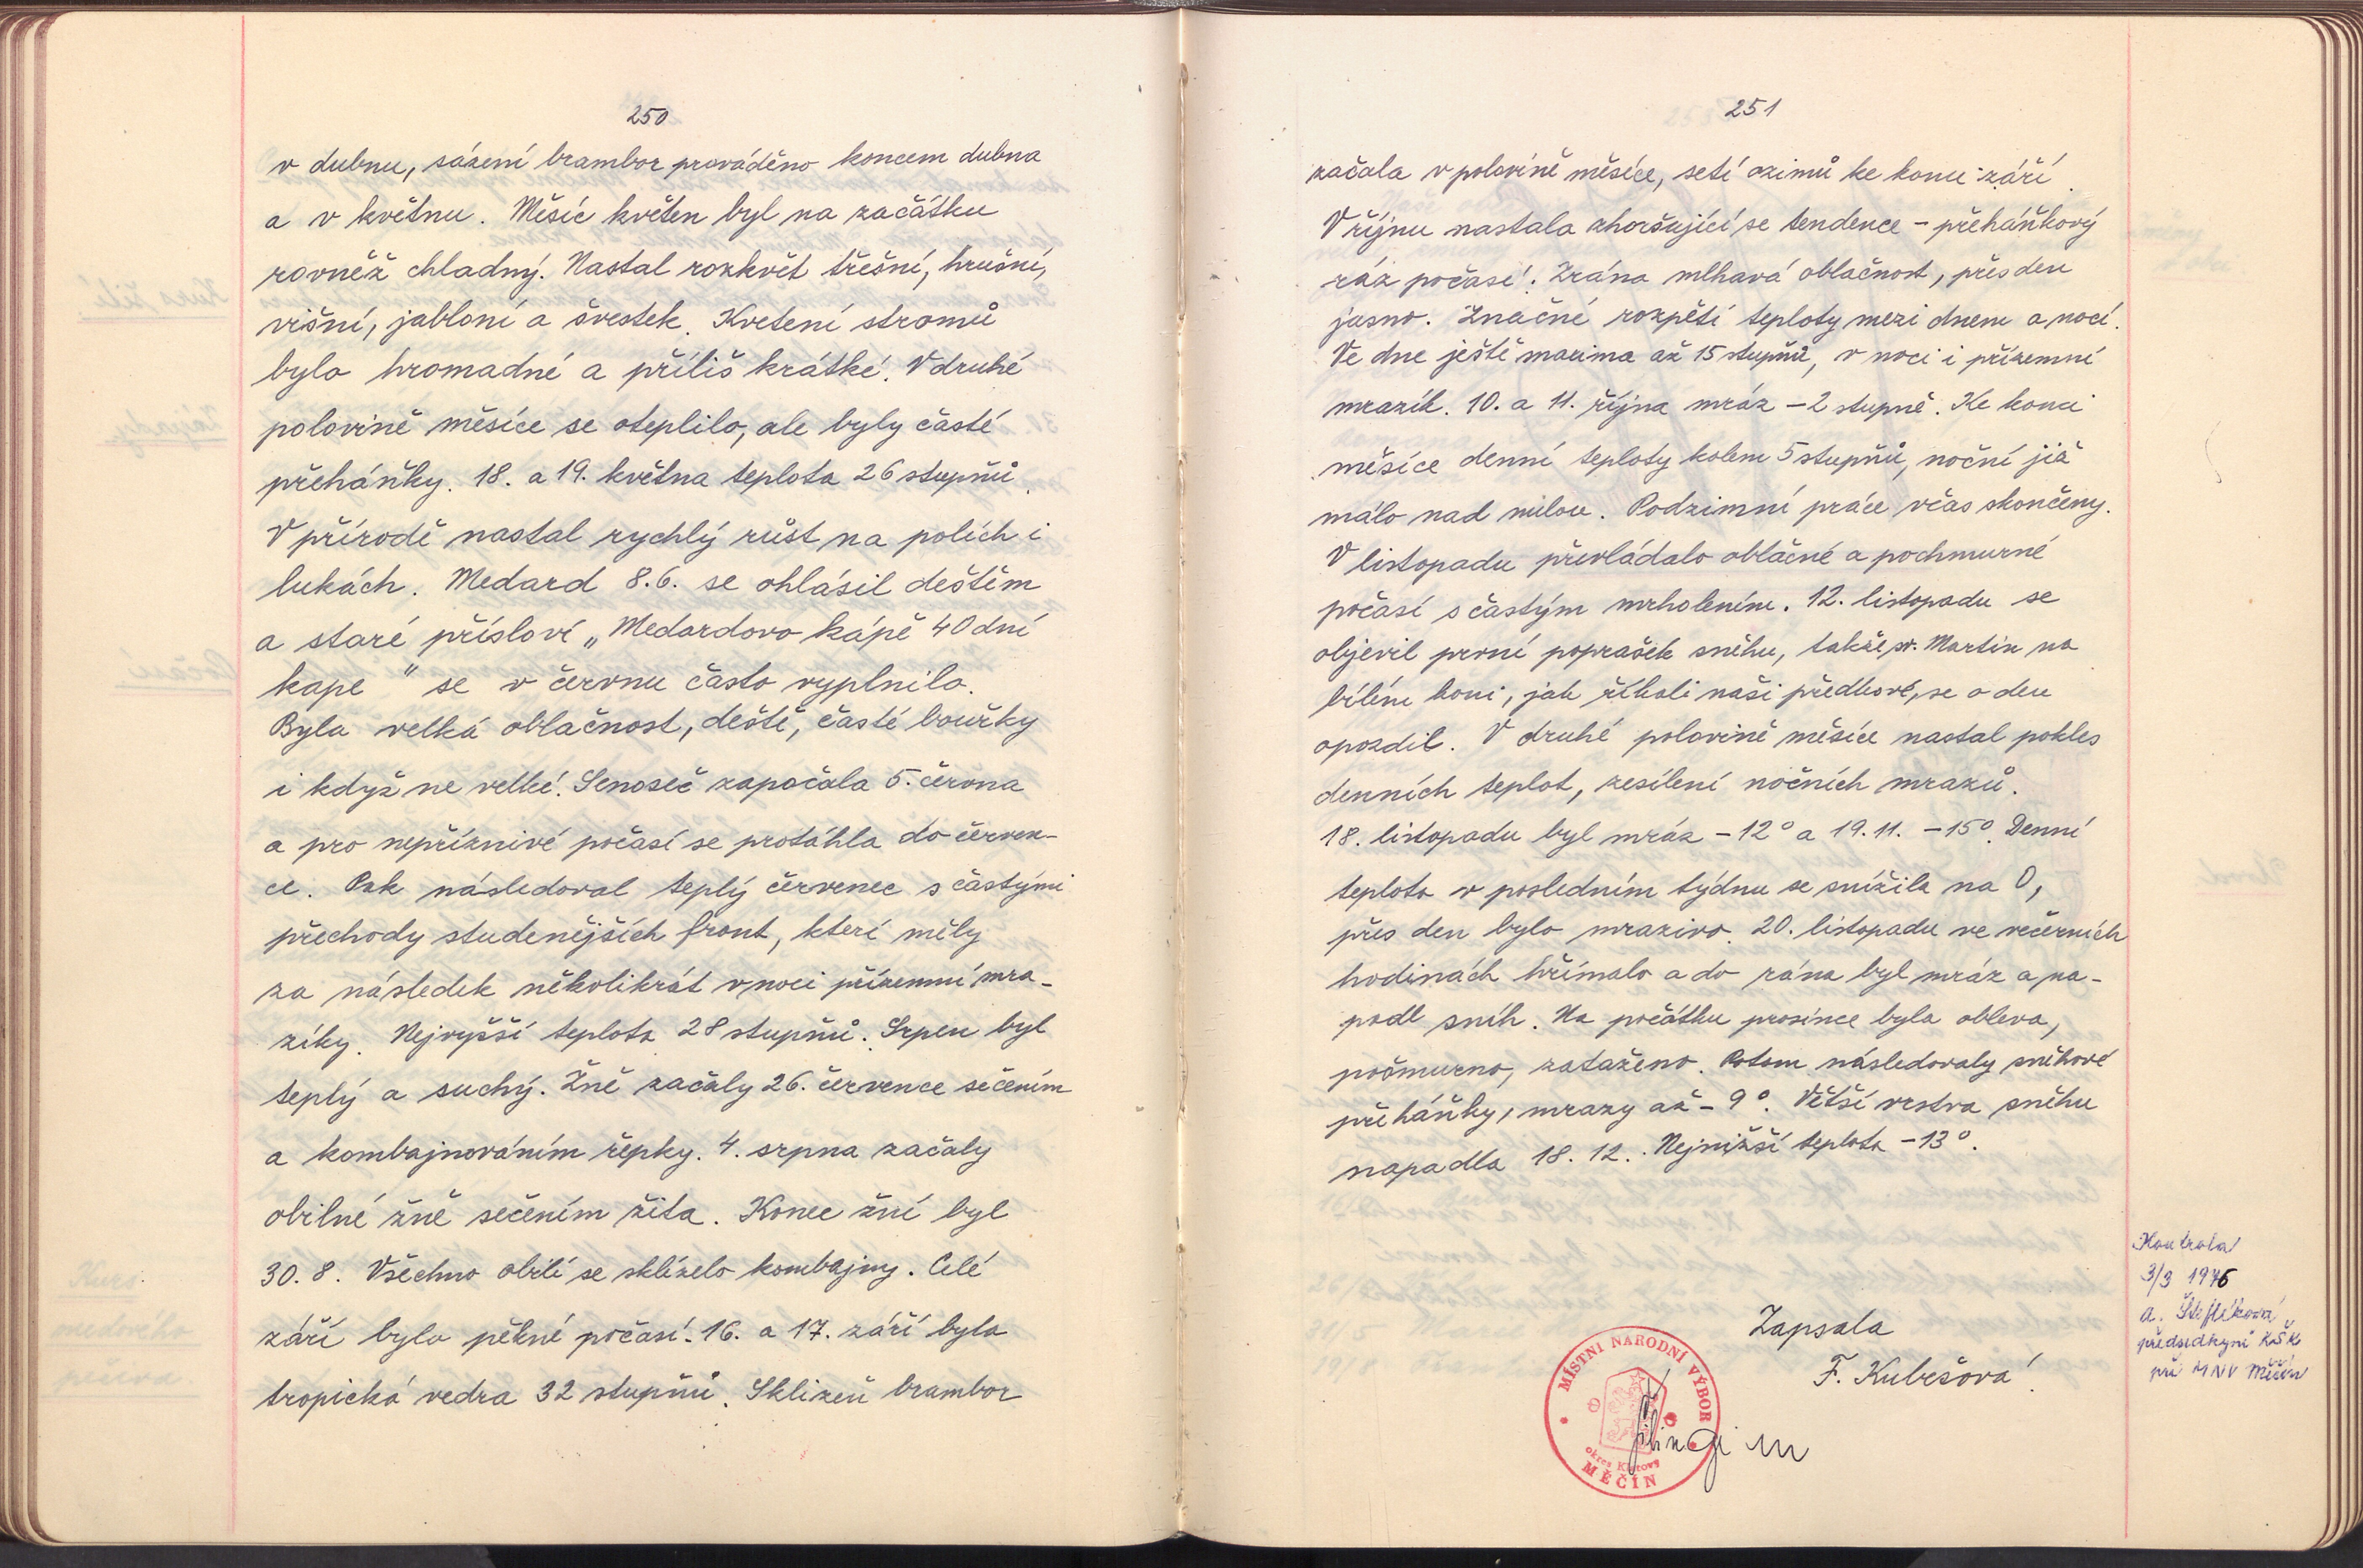 250
v dubnu, sázení brambor prováděno koncem dubna
a v květnu. Měsíc květen byl na začátku
rovněž chladný. Nastal rozkvět třešní, hrušní,
višní, jabloní a švestek. Kvetení stromů
bylo hromadné a příliš krátké. V druhé
polovině měsíce se oteplilo, ale byly časté
přeháňky. 18. a 19. května teplota 26 stupňů.
V přírodě nastal rychlý růst na polích i
lukách. Medard 8.6. se ohlásil deštěm
a staré přísloví „Medardovo kápě 40 dní
kape" se v červnu často vyplnilo.
Byla velká oblačnost, deště, časté bouřky
i když ne velké. Senoseč započala 5. června
a pro nepříznivé počasí se protáhla do červen-
ce. Pak následoval teplý červenec s častými
přechody studenějších front, které měly
za následek několikrát v noci přízemní mra-
zíky. Nejvyšší teplota 28 stupňů. Srpen byl
teplý a suchý. Žně začaly 26. července sečením
a kombajnováním řepky. 4. srpna začaly
obilné žně sečením žita. Konec žní byl
30. 8. Všechno obilí se sklízelo kombajny. Celé
září bylo pěkné počasí. 16. a 17. září byla
tropická vedra 32 stupňů. Sklizeň brambor
251
začala v polovině měsíce, setí ozimů ke konci září.
V říjnu nastala zhoršující se tendence – přeháňkový
ráz počasí. Zrána mlhavá oblačnost, přes den
jasno. Značné rozpětí teploty mezi dnem a nocí.
Ve dne ještě maxima až 15 stupňů, v noci i přízemní
mrazík. 10. a 11. října mráz –2 stupně. Ke konci
měsíce denní teploty kolem 5 stupňů, noční již
málo nad nulou. Podzimní práce včas skončeny.
V listopadu převládalo oblačné a pochmurné
počasí s častým mrholením. 12. listopadu se
objevil první poprašek sněhu, takže sv. Martin na
bílém koni, jak říkali naši předkové, se o den
opozdil. V druhé polovině měsíce nastal pokles
denních teplot, zesílení nočních mrazů.
18. listopadu byl mráz –12° a 19.11. –15°. Denní
teplota v posledním týdnu se snížila na 0,
přes den bylo mrazivo. 20. listopadu ve večerních
hodinách hřímalo a do rána byl mráz a na-
padl sníh. Na počátku prosince byla obleva,
pošmurno, zataženo. Potom následovaly sněhové
přeháňky, mrazy až –9°. Větší vrstva sněhu
napadla 18. 12.. Nejnižší teplota –13°.
Zapsala
F. Kubešová
MÍSTNÍ NÁRODNÍ VÝBOR
okres Klatovy
MĚČÍN
Kontrola
3/3 1976
předsedkyně KŠK
při MNV Měčín